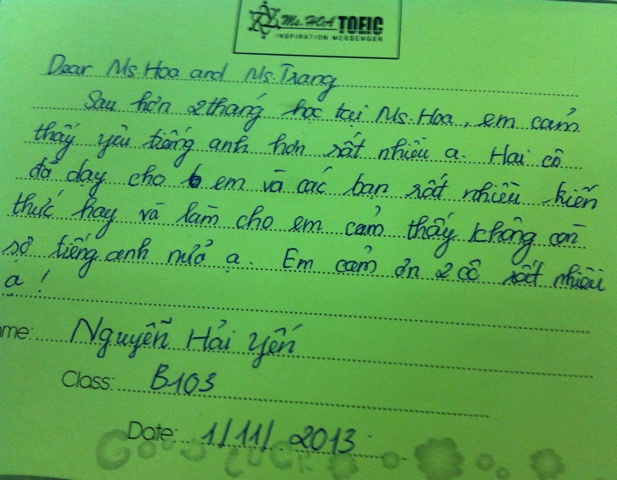 Ms. HOA TOEIC
INSPIRATION MESSENGER
Dear Ms Hoa and Ms Trang
Sau hơn 2 tháng học tại Ms. Hoa, em cảm
thấy yêu tiếng anh hơn rất nhiều ạ. Hai cô
đã dạy cho em và các bạn rất nhiều kiến
thức hay và làm cho em cảm thấy không còn
sợ tiếng anh nữa ạ. Em cảm ơn 2 cô rất nhiều
ạ!
me: Nguyễn Hải Yến
Class: B103
Date: 1/11/2013
GOOD LUCK